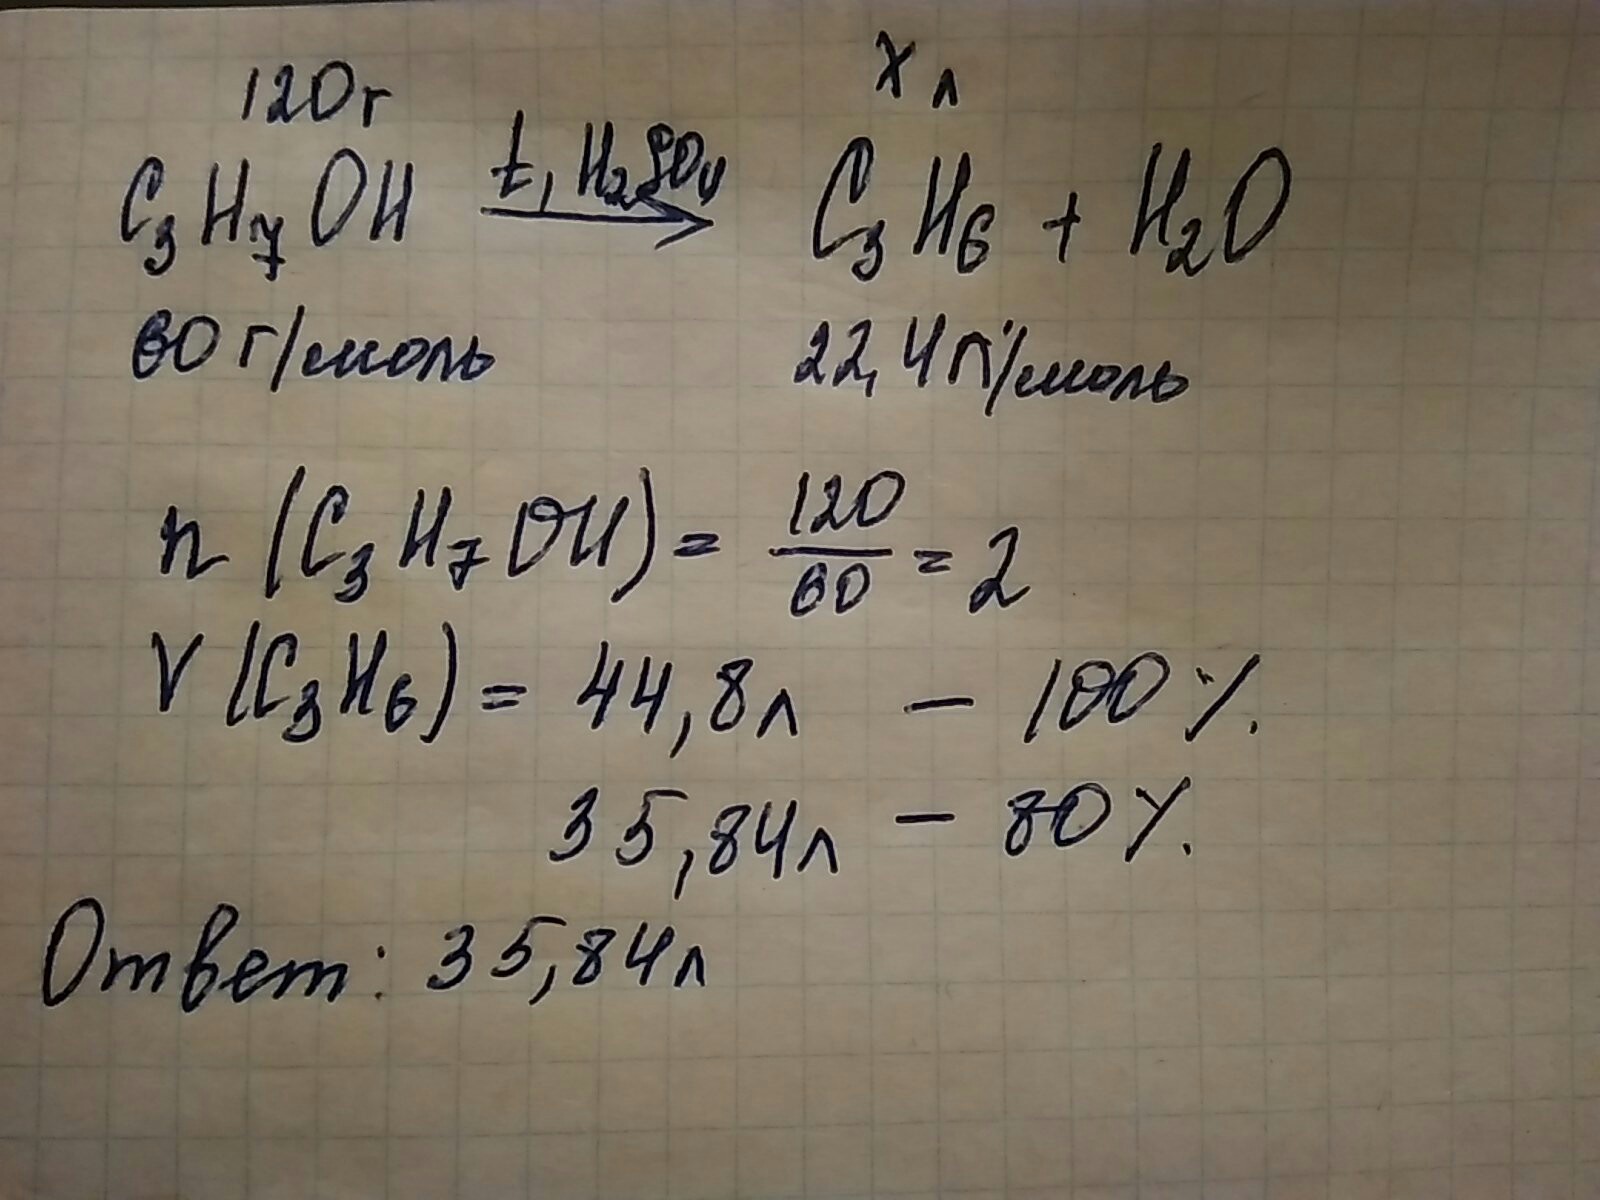 120г x л
C₃H₇OH t, H₂SO₄ → C₃H₆ + H₂O
60 г/моль 22,4 л/моль
n (C₃H₇OH) = 120/60 = 2
V (C₃H₆) = 44,8 л – 100%
35,84 л – 80%
Ответ: 35,84 л